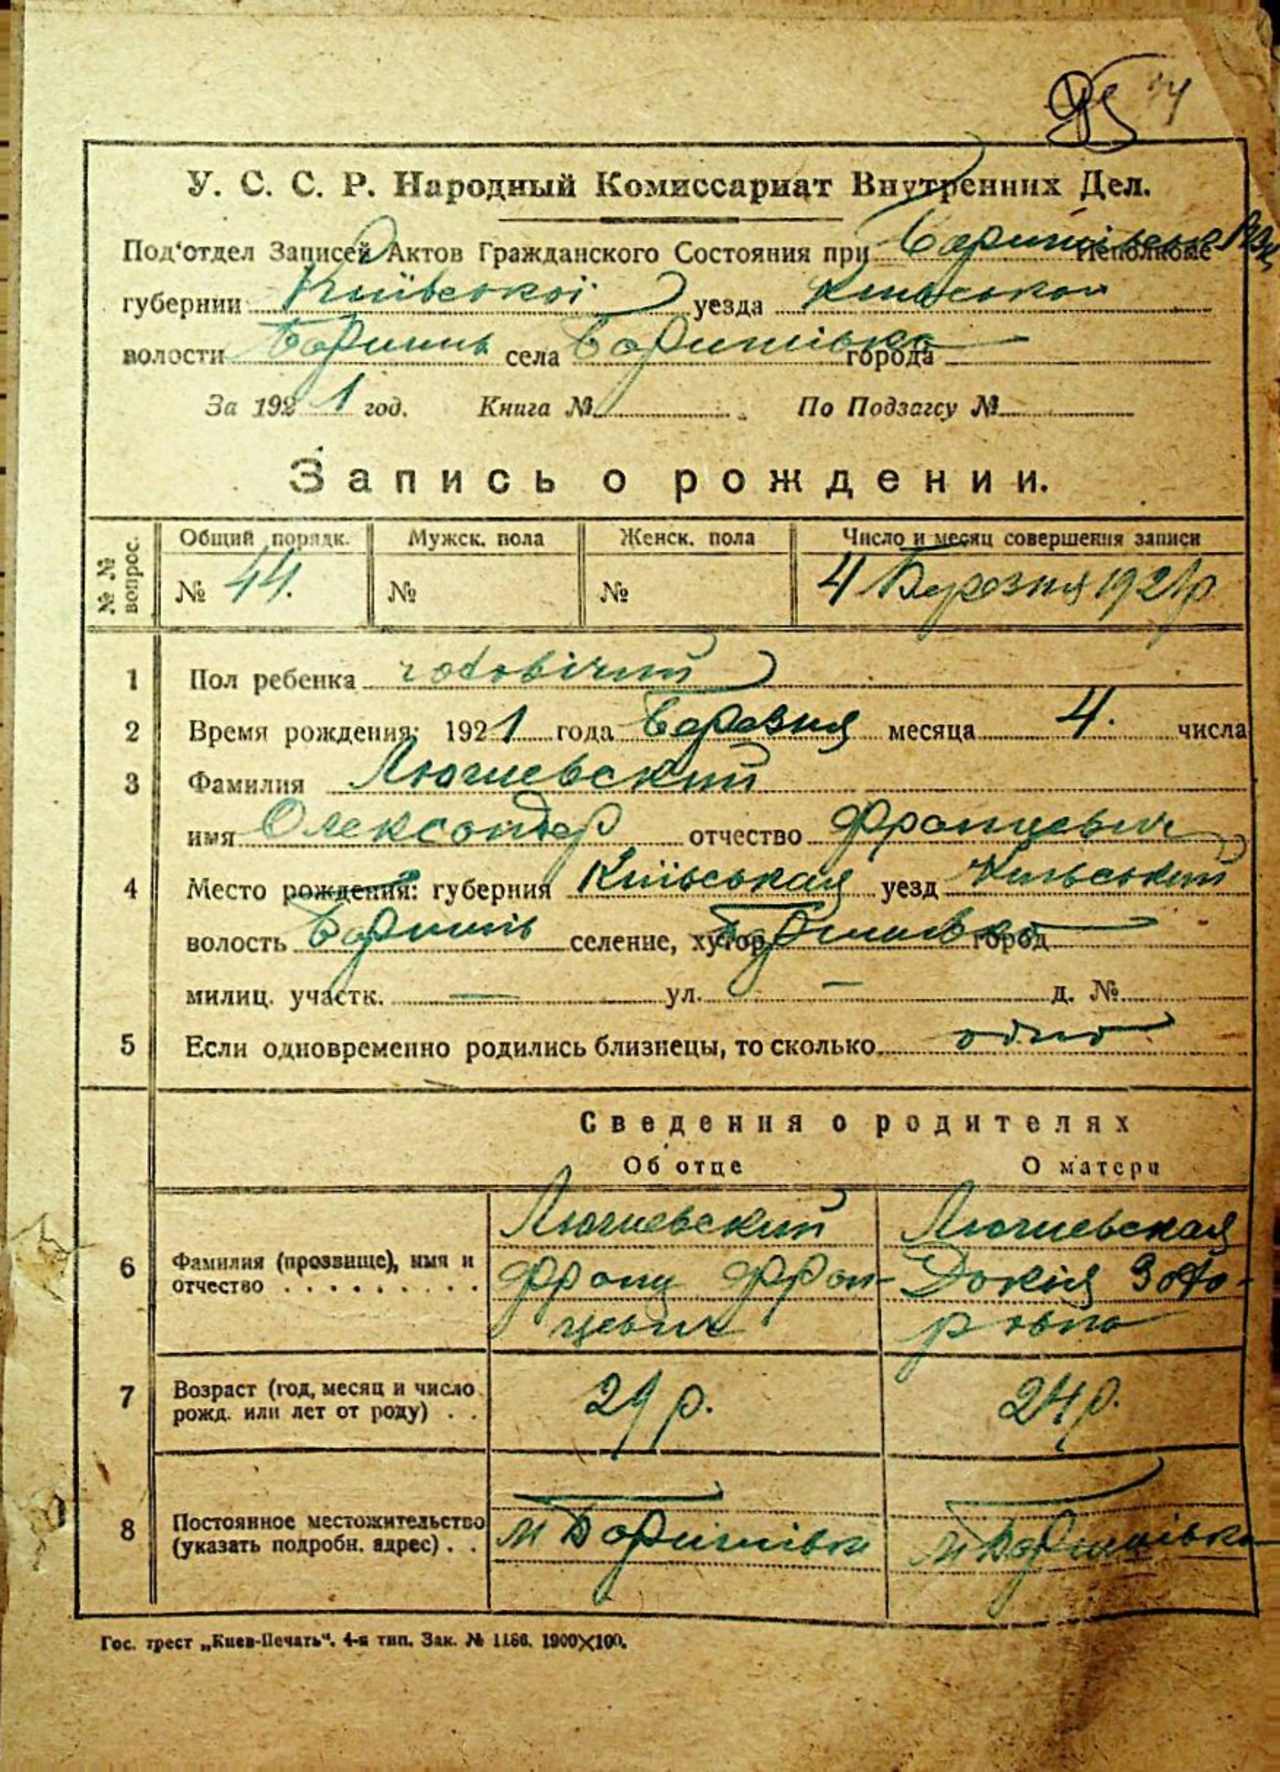 У. С. С. Р. Народный Комиссариат Внутренних Дел.
Под'отдел Записей Актов Гражданского Состояния при Исполкоме
губернии Київської уезда
волости Баришь села Баришівка города
За 1921 год. Книга № По Подзагсу №
Запись о рождении.
№ № вопрос. Общий порядк. Мужск. пола Женск. пола Число и месяц совершения записи
№ 44. № № 4 Березня 1921р
1 Пол ребенка чоловічий
2 Время рождения: 1921 года Березня месяца 4. числа
3 Фамилия
имя Олександер отчество Францевич
4 Место рождения: губерния Київськая уезд Київський
волость селение, хутор город
милиц. участк. — ул. — д. №
5 Если одновременно родились близнецы, то сколько одно
Сведения о родителях
Об отце О матери
6 Фамилия (прозвище), имя и отчество
Франц Францевич
Докія
7 Возраст (год, месяц и число рожд. или лет от роду) . . 29 р. 24 р.
8 Постоянное местожительство (указать подробн. адрес) . . м Баришівка м Баришівка
Гос. трест „Киев-Печать". 4-я тип. Зак. № 1186. 1900×100.